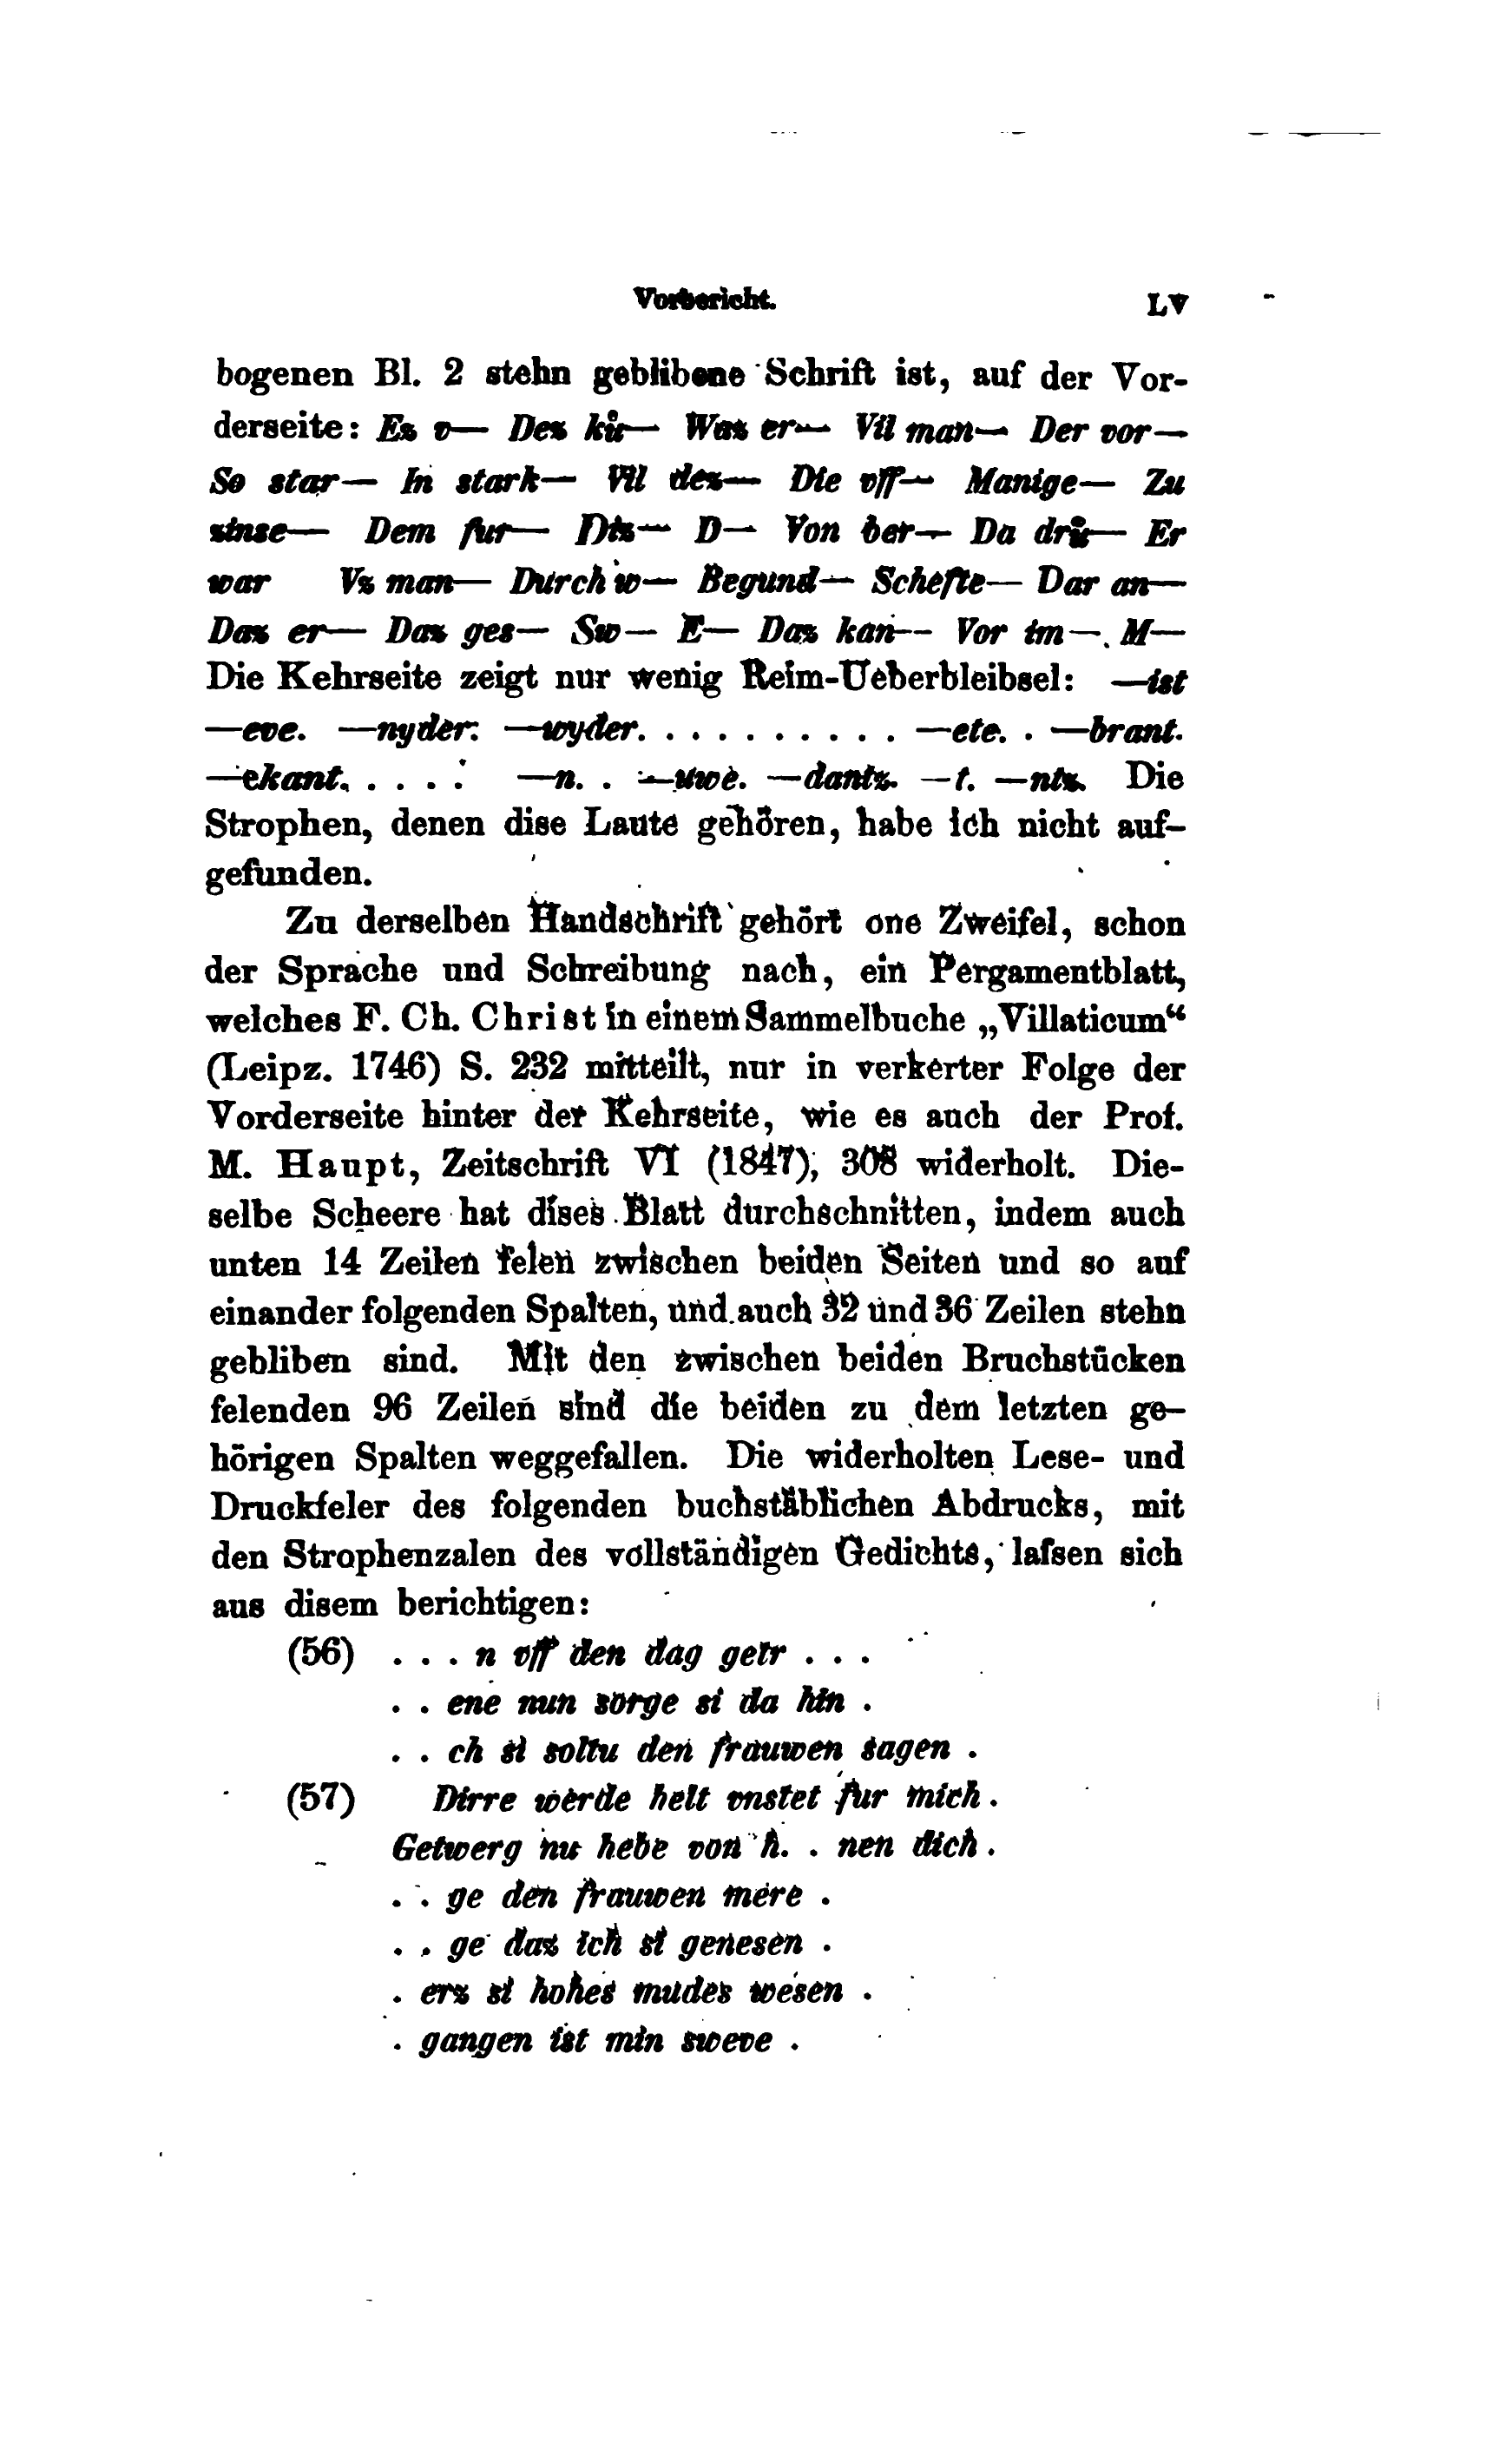 Vorbericht. LV
bogenen Bl. 2 stehn geblibene Schrift ist, auf der Vor-
derseite: Ez v— Dez ků— Waz er— Vil man— Der vor—
So star— In stark— Vil dez— Die vff— Manige— Zu
zinse— Dem fur— Diz— D— Von ber— Da drů— Er
war Vz man— Durch w— Begund— Schefte— Dar an—
Daz er— Daz ges— Sw— E— Daz kan— Vor im—. M—
Die Kehrseite zeigt nur wenig Reim-Ueberbleibsel: —ist
—eve. —nyder. —wyder. . . . . . . . . . . —ete. . —brant.
—ekant. . . . . —n. . —uwe. —dantz. —t. —ntz. Die
Strophen, denen dise Laute gehören, habe ich nicht auf-
gefunden.
Zu derselben Handschrift gehört one Zweifel, schon
der Sprache und Schreibung nach, ein Pergamentblatt,
welches F. Ch. Christ in einem Sammelbuche „Villaticum“
(Leipz. 1746) S. 232 mitteilt, nur in verkerter Folge der
Vorderseite hinter der Kehrseite, wie es auch der Prof.
M. Haupt, Zeitschrift VI (1847), 308 widerholt. Die-
selbe Scheere hat dises Blatt durchschnitten, indem auch
unten 14 Zeilen felen zwischen beiden Seiten und so auf
einander folgenden Spalten, und auch 32 und 36 Zeilen stehn
gebliben sind. Mit den zwischen beiden Bruchstücken
felenden 96 Zeilen sind die beiden zu dem letzten ge-
hörigen Spalten weggefallen. Die widerholten Lese- und
Druckfeler des folgenden buchstäblichen Abdrucks, mit
den Strophenzalen des vollständigen Gedichts, laſsen sich
aus disem berichtigen:
(56) . . . n vff den dag getr . . .
. . ene nun sorge si da hin .
. . ch si soltu den frauwen sagen .
(57) Dirre werde helt vnstet fur mich .
Getwerg nu hebe von h. . nen dich .
. . ge den frauwen mere .
. . ge daz ich si genesen .
. erz si hohes mudes wesen .
. gangen ist min sweve .